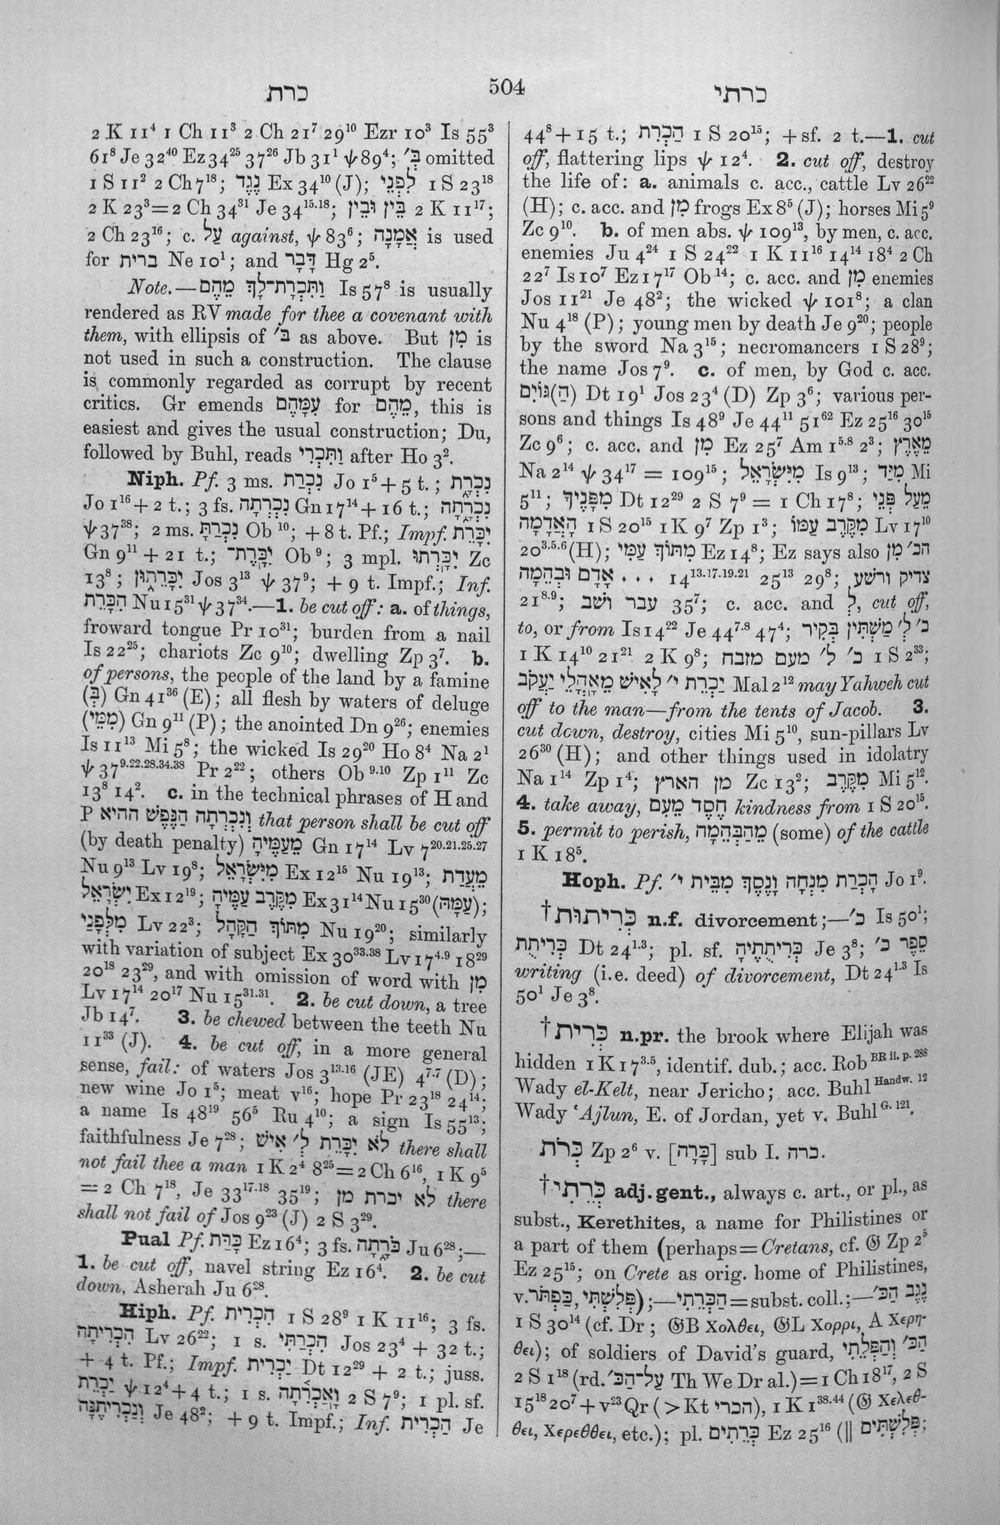 כרת
504
כרתי
2 K 11⁴ 1 Ch 11³ 2 Ch 21⁷ 29¹⁰ Ezr 10³ Is 55³
61⁸ Je 32⁴⁰ Ez 34²⁵ 37²⁶ Jb 31¹ ψ 89⁴; בְּ׳ omitted
1 S 11² 2 Ch 7¹⁸; נֶגֶד Ex 34¹⁰ (J); לִפְנֵי 1 S 23¹⁸
2 K 23³=2 Ch 34³¹ Je 34¹⁵·¹⁸; בֵּין וּבֵין 2 K 11¹⁷;
2 Ch 23¹⁶; c. עַל against, ψ 83⁶; אֲמָנָה is used
for ברית Ne 10¹; and דָּבָר Hg 2⁵.
Note.—וַתִּכְרָת־לְךָ מֵהֶם Is 57⁸ is usually
rendered as RV made for thee a covenant with
them, with ellipsis of ב׳ as above. But מִן is
not used in such a construction. The clause
is commonly regarded as corrupt by recent
critics. Gr emends עִמָּהֶם for מֵהֶם, this is
easiest and gives the usual construction; Du,
followed by Buhl, reads וַתִּכְרִי after Ho 3².
Niph. Pf. 3 ms. נִכְרַת Jo 1⁵ + 5 t.; נִכְרָת
Jo 1¹⁶ + 2 t.; 3 fs. נִכְרְתָה Gn 17¹⁴ + 16 t.; נִכְרָתָה
ψ 37³⁸; 2 ms. נִכְרַתָּ Ob ¹⁰; + 8 t. Pf.; Impf. יִכָּרֵת
Gn 9¹¹ + 21 t.; יִכָּרֶת־ Ob ⁹; 3 mpl. יִכָּרְתוּ Zc
13⁸; יִכָּרֵתוּן Jos 3¹³ ψ 37⁹; + 9 t. Impf.; Inf.
הִכָּרֵת Nu 15³¹ ψ 37³⁴.—1. be cut off: a. of things,
froward tongue Pr 10³¹; burden from a nail
Is 22²⁵; chariots Zc 9¹⁰; dwelling Zp 3⁷. b.
of persons, the people of the land by a famine
(בְּ) Gn 41³⁶ (E); all flesh by waters of deluge
(מִמֵּי) Gn 9¹¹ (P); the anointed Dn 9²⁶; enemies
Is 11¹³ Mi 5⁸; the wicked Is 29²⁰ Ho 8⁴ Na 2¹
ψ 37⁹·²²·²⁸·³⁴·³⁸ Pr 2²²; others Ob ⁹·¹⁰ Zp 1¹¹ Zc
13⁸ 14². c. in the technical phrases of H and
P וְנִכְרְתָה הַנֶּפֶשׁ ההיא that person shall be cut off
(by death penalty) מֵעַמֶּיהָ Gn 17¹⁴ Lv 7²⁰·²¹·²⁵·²⁷
Nu 9¹³ Lv 19⁸; מִיִּשְׂרָאֵל Ex 12¹⁵ Nu 19¹³; מֵעֲדַת
יִשְׂרָאֵל Ex 12¹⁹; מִקֶּרֶב עַמֶּיהָ Ex 31¹⁴ Nu 15³⁰ (עַמָּהּ);
מִלְּפָנַי Lv 22³; מִתּוֹךְ הַקָּהָל Nu 19²⁰; similarly
with variation of subject Ex 30³³·³⁸ Lv 17⁴·⁹ 18²⁹
20¹⁸ 23²⁹, and with omission of word with מִן
Lv 17¹⁴ 20¹⁷ Nu 15³¹·³¹. 2. be cut down, a tree
Jb 14⁷. 3. be chewed between the teeth Nu
11³³ (J). 4. be cut off, in a more general
sense, fail: of waters Jos 3¹³·¹⁶ (JE) 4⁷·⁷ (D);
new wine Jo 1⁵; meat v¹⁶; hope Pr 23¹⁸ 24¹⁴;
a name Is 48¹⁹ 56⁵ Ru 4¹⁰; a sign Is 55¹³;
faithfulness Je 7²⁸; לֹא יִכָּרֵת לְ׳ אִישׁ there shall
not fail thee a man 1 K 2⁴ 8²⁵=2 Ch 6¹⁶, 1 K 9⁵
=2 Ch 7¹⁸, Je 33¹⁷·¹⁸ 35¹⁹; לֹא יכרת מן there
shall not fail of Jos 9²³ (J) 2 S 3²⁹.
Pual Pf. כֹּרַּת Ez 16⁴; 3 fs. כֹּרָתָה Ju 6²⁸;—
1. be cut off, navel string Ez 16⁴. 2. be cut
down, Asherah Ju 6²⁸.
Hiph. Pf. הִכְרִית 1 S 28⁹ 1 K 11¹⁶; 3 fs.
הִכְרִיתָה Lv 26²²; 1 s. הִכְרַתִּי Jos 23⁴ + 32 t.;
+ 4 t. Pf.; Impf. יַכְרִית Dt 12²⁹ + 2 t.; juss.
יַכְרֵת ψ 12⁴ + 4 t.; 1 s. וָאַכְרִתָה 2 S 7⁹; 1 pl. sf.
וְנַכְרִיתֶנָּה Je 48²; + 9 t. Impf.; Inf. הַכְרִית Je
44⁸ + 15 t.; הַכְרִת 1 S 20¹⁵; + sf. 2 t.—1. cut
off, flattering lips ψ 12⁴. 2. cut off, destroy
the life of: a. animals c. acc., cattle Lv 26²²
(H); c. acc. and מִן frogs Ex 8⁵ (J); horses Mi 5⁹
Zc 9¹⁰. b. of men abs. ψ 109¹³, by men, c. acc.
enemies Ju 4²⁴ 1 S 24²² 1 K 11¹⁶ 14¹⁴ 18⁴ 2 Ch
22⁷ Is 10⁷ Ez 17¹⁷ Ob ¹⁴; c. acc. and מִן enemies
Jos 11²¹ Je 48²; the wicked ψ 101⁸; a clan
Nu 4¹⁸ (P); young men by death Je 9²⁰; people
by the sword Na 3¹⁵; necromancers 1 S 28⁹;
the name Jos 7⁹. c. of men, by God c. acc.
(הַ)גּוֹיִם Dt 19¹ Jos 23⁴ (D) Zp 3⁶; various per-
sons and things Is 48⁹ Je 44¹¹ 51⁶² Ez 25¹⁶ 30¹⁵
Zc 9⁶; c. acc. and מִן Ez 25⁷ Am 1⁵·⁸ 2³; מֵאֶרֶץ
Na 2¹⁴ ψ 34¹⁷ = 109¹⁵; מִיִּשְׂרָאֵל Is 9¹³; מִיַּד Mi
5¹¹; מִפָּנֶיךָ Dt 12²⁹ 2 S 7⁹ = 1 Ch 17⁸; מֵעַל פְּנֵי
הָאֲדָמָה 1 S 20¹⁵ 1 K 9⁷ Zp 1³; מִקֶּרֶב עַמּוֹ Lv 17¹⁰
20³·⁵·⁶ (H); מִתּוֹךְ עַמִּי Ez 14⁸; Ez says also הכ׳ מִן
אָדָם וּבְהֵמָה ... 14¹³·¹⁷·¹⁹·²¹ 25¹³ 29⁸; צדיק ורשע
21⁸·⁹; עבר וּשָׁב 35⁷; c. acc. and לְ, cut off,
to, or from Is 14²² Je 44⁷·⁸ 47⁴; כ׳ לְ׳ מַשְׁתִּין בְּקִיר
1 K 14¹⁰ 21²¹ 2 K 9⁸; כ׳ לְ׳ מעם מזבח 1 S 2³³;
יַכְרֵת י״ לָאִישׁ מֵאָהֳלֵי יַעֲקֹב Mal 2¹² may Yahweh cut
off to the man—from the tents of Jacob. 3.
cut down, destroy, cities Mi 5¹⁰, sun-pillars Lv
26³⁰ (H); and other things used in idolatry
Na 1¹⁴ Zp 1⁴; מן הארץ Zc 13²; מִקֶּרֶב Mi 5¹².
4. take away, חֶסֶד מֵעִם kindness from 1 S 20¹⁵.
5. permit to perish, מֵהַבְּהֵמָה (some) of the cattle
1 K 18⁵.
Hoph. Pf. הָכְרַת מִנְחָה וָנֶסֶךְ מִבֵּית י״ Jo 1⁹.
†כְּרִיתוּת n.f. divorcement;—כ׳ Is 50¹;
כְּרִיתֻת Dt 24¹·³; pl. sf. כְּרִיתֻתֶיהָ Je 3⁸; סֵפֶר כ׳
writing (i.e. deed) of divorcement, Dt 24¹·³ Is
50¹ Je 3⁸.
†כְּרִית n.pr. the brook where Elijah was
hidden 1 K 17³·⁵, identif. dub.; acc. Rob BR ii. p. 288
Wady el-Kelt, near Jericho; acc. Buhl Handw. 12
Wady ʻAjlun, E. of Jordan, yet v. Buhl G. 121.
כְּרֹת Zp 2⁶ v. [כָּרָה] sub I. כרה.
†כְּרֵתִי adj.gent., always c. art., or pl., as
subst., Kerethites, a name for Philistines or
a part of them (perhaps=Cretans, cf. 𝔊 Zp 2⁵
Ez 25¹⁵; on Crete as orig. home of Philistines,
v. פְּלִשְׁתִּי, כַּפְתֹּר);—הַכְּרֵתִי=subst. coll.;—נֶגֶב הַכּ׳
1 S 30¹⁴ (cf. Dr; 𝔊B Χολθει, 𝔊L Χορρι, A Χερη-
θει); of soldiers of David's guard, הַכּ׳ וְהַפְּלֵתִי
2 S 8¹⁸ (rd. עַל־הַכּ׳ Th We Dr al.)=1 Ch 18¹⁷, 2 S
15¹⁸ 20⁷ + v²³ Qr (>Kt הכרי), 1 K 1³⁸·⁴⁴ (𝔊 Χελεθ-
θει, Χερεθθει, etc.); pl. כְּרֵתִים Ez 25¹⁶ (|| פְּלִשְׁתִּים;